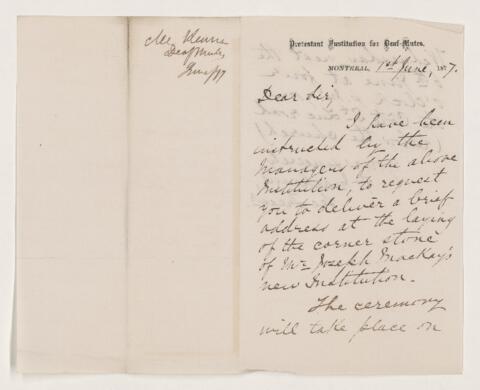 Deaf Mutes,
June/77
Protestant Institution for Deaf-Mutes.
MONTREAL, 1st June, 1877.
Dear Sir,
I have been
instructed by the
Managers of the above
Institution, to request
you to deliver a brief
address at the laying
of the corner stone
of Mr. Joseph Mackay's
new Institution.
The ceremony
will take place on